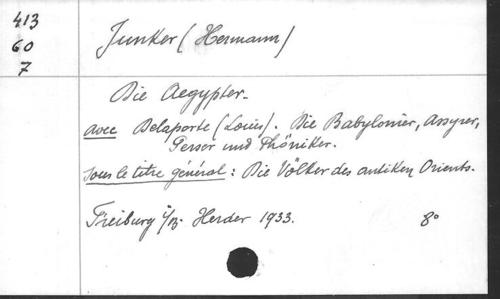 413
60
7
Junker (Hermann)
Die Aegypter.
avec Delaporte (Louis). Die Babylonier, Assyrer,
Perser und Phöniker.
sous le titre général : Die Völker des antiken Orients.
Freiburg i/B. Herder 1933. 8°